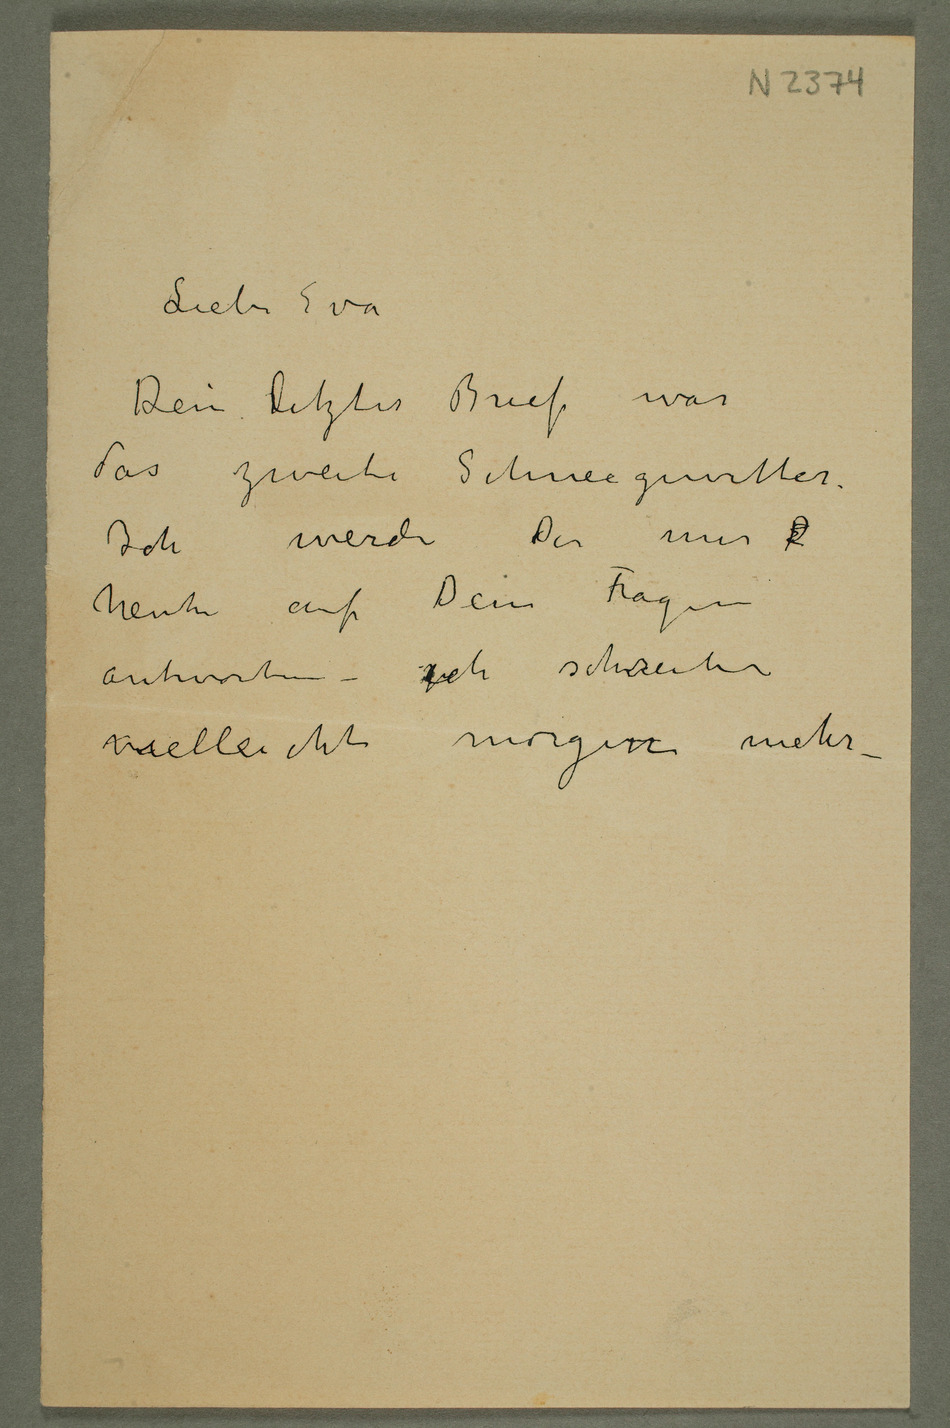 N 2374
Liebe Eva
Dein letzter Brief war
das zweite Schneegewitter.
Ich werde Dir nur
heute auf Deine Fragen
antworten – ich schreibe
vielleicht morgen mehr –